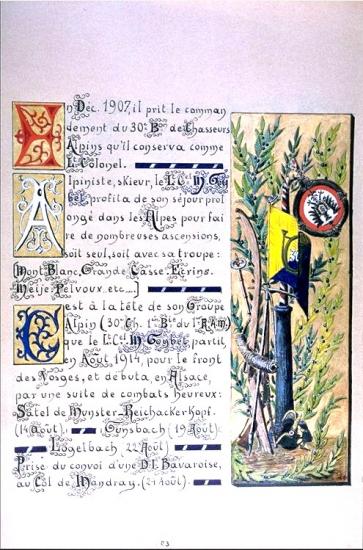 En Déc. 1907, il prit le comman
dement du 30e Bn de Chasseurs
Alpins qu'il conserva comme
Lt Colonel.
Alpiniste, skieur, le Lt Cl M Goy
bet profita de son séjour prol
ongé dans les Alpes pour fai
re de nombreuses ascensions,
soit seul, soit avec sa troupe:
Mont Blanc, Grande Casse. Ecrins.
Meije. Pelvoux. etc....]
C'est à la tête de son Groupe
Alpin (30e Ch. 1re Bie du 1r R.A.M.)
que le Lt Cl M Goybet partit,
en Août 1914, pour le front
des Vosges, et débuta, en Alsace,
par une suite de combats heureux:
Satel de Munster-Reichackerkopf.
(14 août). Gunsbach (19 Août)
Logelbach 22 Août)
Prise du convoi d'une D.I. Bavaroise,
au Col de Mandray. (27 Août).